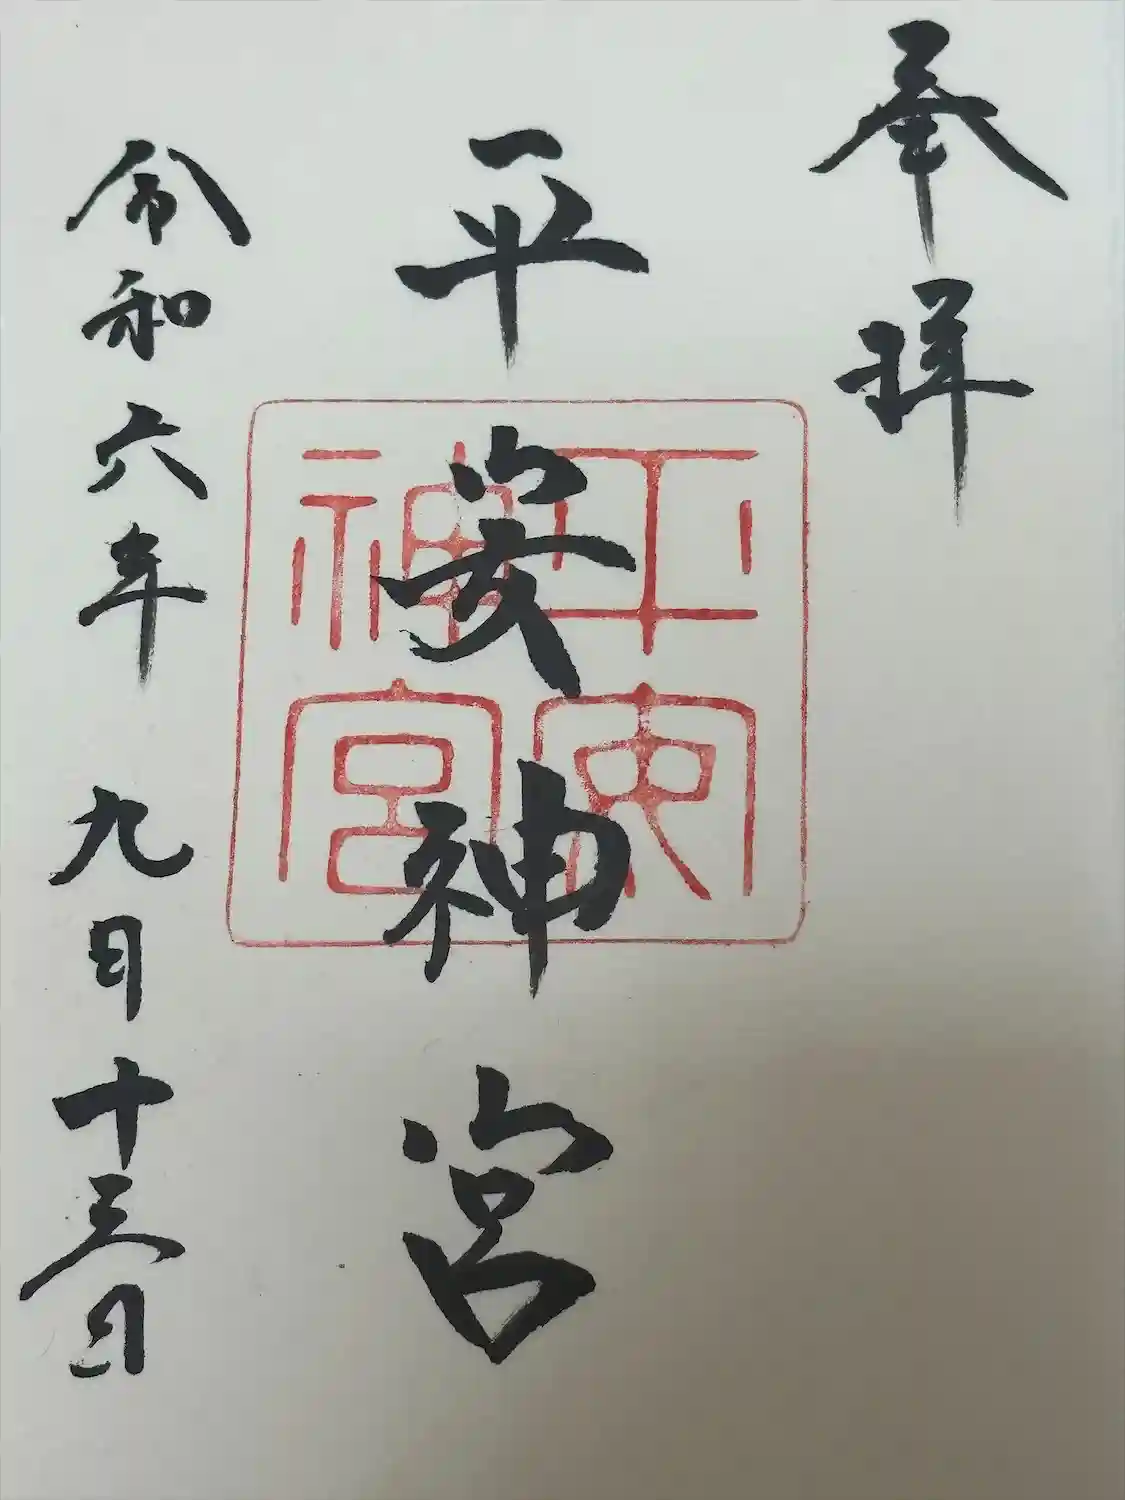 奉拝
平安神宮
平安神宮
令和六年 九月十三日